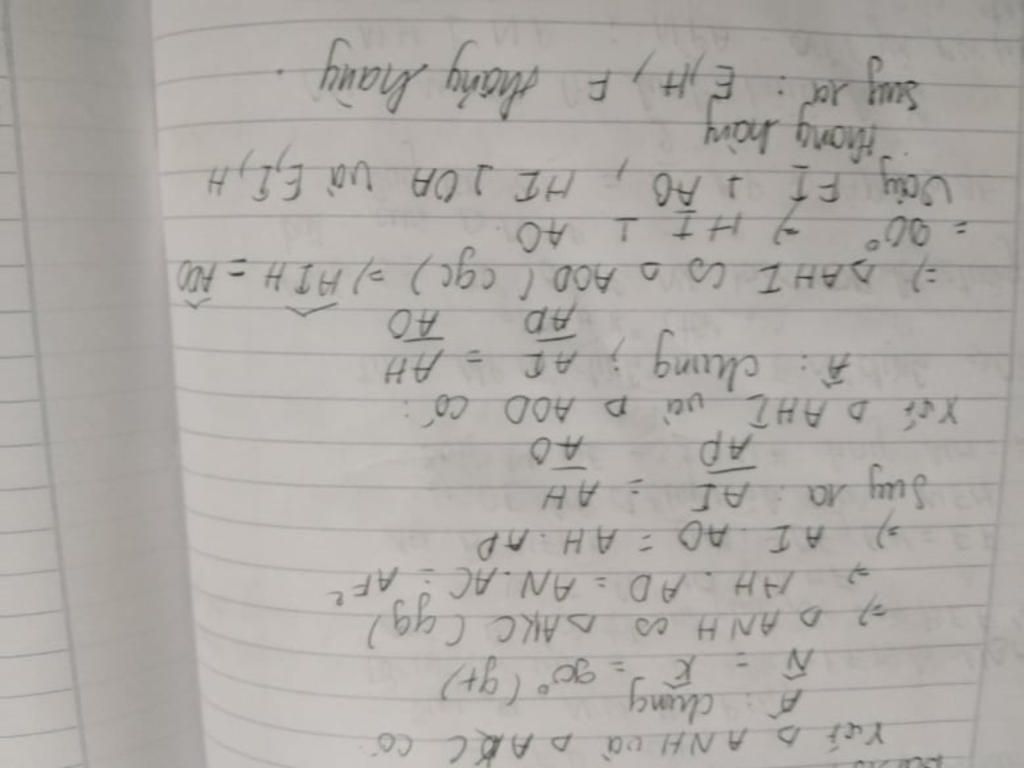 Xét Δ ANH và Δ AKC có:
Â: chung
N̂ = K̂ = 90° (gt)
=> Δ ANH ∽ Δ AKC (gg)
=> AH . AD = AN . AC = AF²
=> AI . AO = AH . AD
Suy ra: AI/AD = AH/AO
Xét Δ AHI và Δ AOD có:
Â: chung ; AI/AD = AH/AO
=> Δ AHI ∽ Δ AOD (cgc) => AIH = ADO
= 90° => HI ⊥ AO
Vậy FI ⊥ AO, HI ⊥ OA và F, I, H
thẳng hàng
Suy ra: E, H, F thẳng hàng.